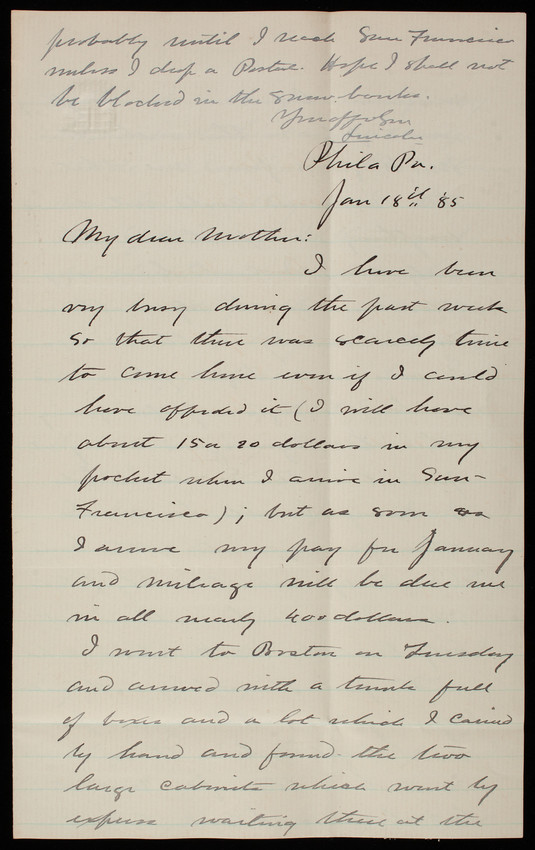 probably until I reach San Francisco
unless I drop a Postal. Hope I shall not
be blocked in the snow banks.
Your aff. Son
Lincoln
Phila Pa.
Jan 18th '85
My dear Mother:
I have been
very busy during the past week
so that there was scarcely time
to come home even if I could
have afforded it (I will have
about 15 or 20 dollars in my
pocket when I arrive in San-
Francisco); but as soon as
I arrive my pay for January
and mileage will be due me
in all nearly 400 dollars.
I went to Boston on Tuesday
and arrived with a trunk full
of boxes and a lot which I carried
by hand and found the two
large cabinets which went by
express waiting there at the